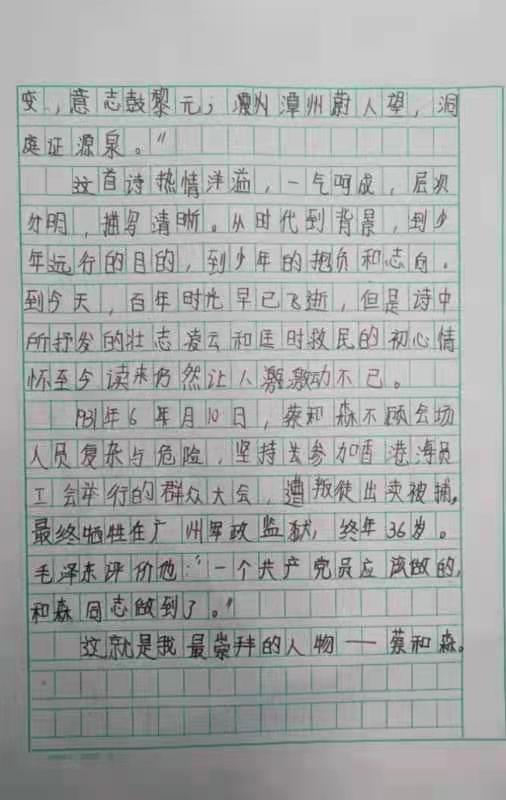 变，意志鼓黎元；潭州潭州蔚人望，洞
庭证源泉。”
这首诗热情洋溢，一气呵成，层次
分明，描写清晰。从时代到背景，到少
年远行的目的，到少年的抱负和志向。
到今天，百年时光早已飞逝，但是诗中
所抒发的壮志凌云和匡时救民的初心情
怀至今读来仍然让人激激动不已。
1931年6年月10日，蔡和森不顾会场
人员复杂与危险，坚持去参加香港海员
工会举行的群众大会，遭叛徒出卖被捕。
最终牺牲在广州军政监狱，终年36岁。
毛泽东评价他：“一个共产党员应该做的，
和森同志做到了。”
这就是我最崇拜的人物——蔡和森。